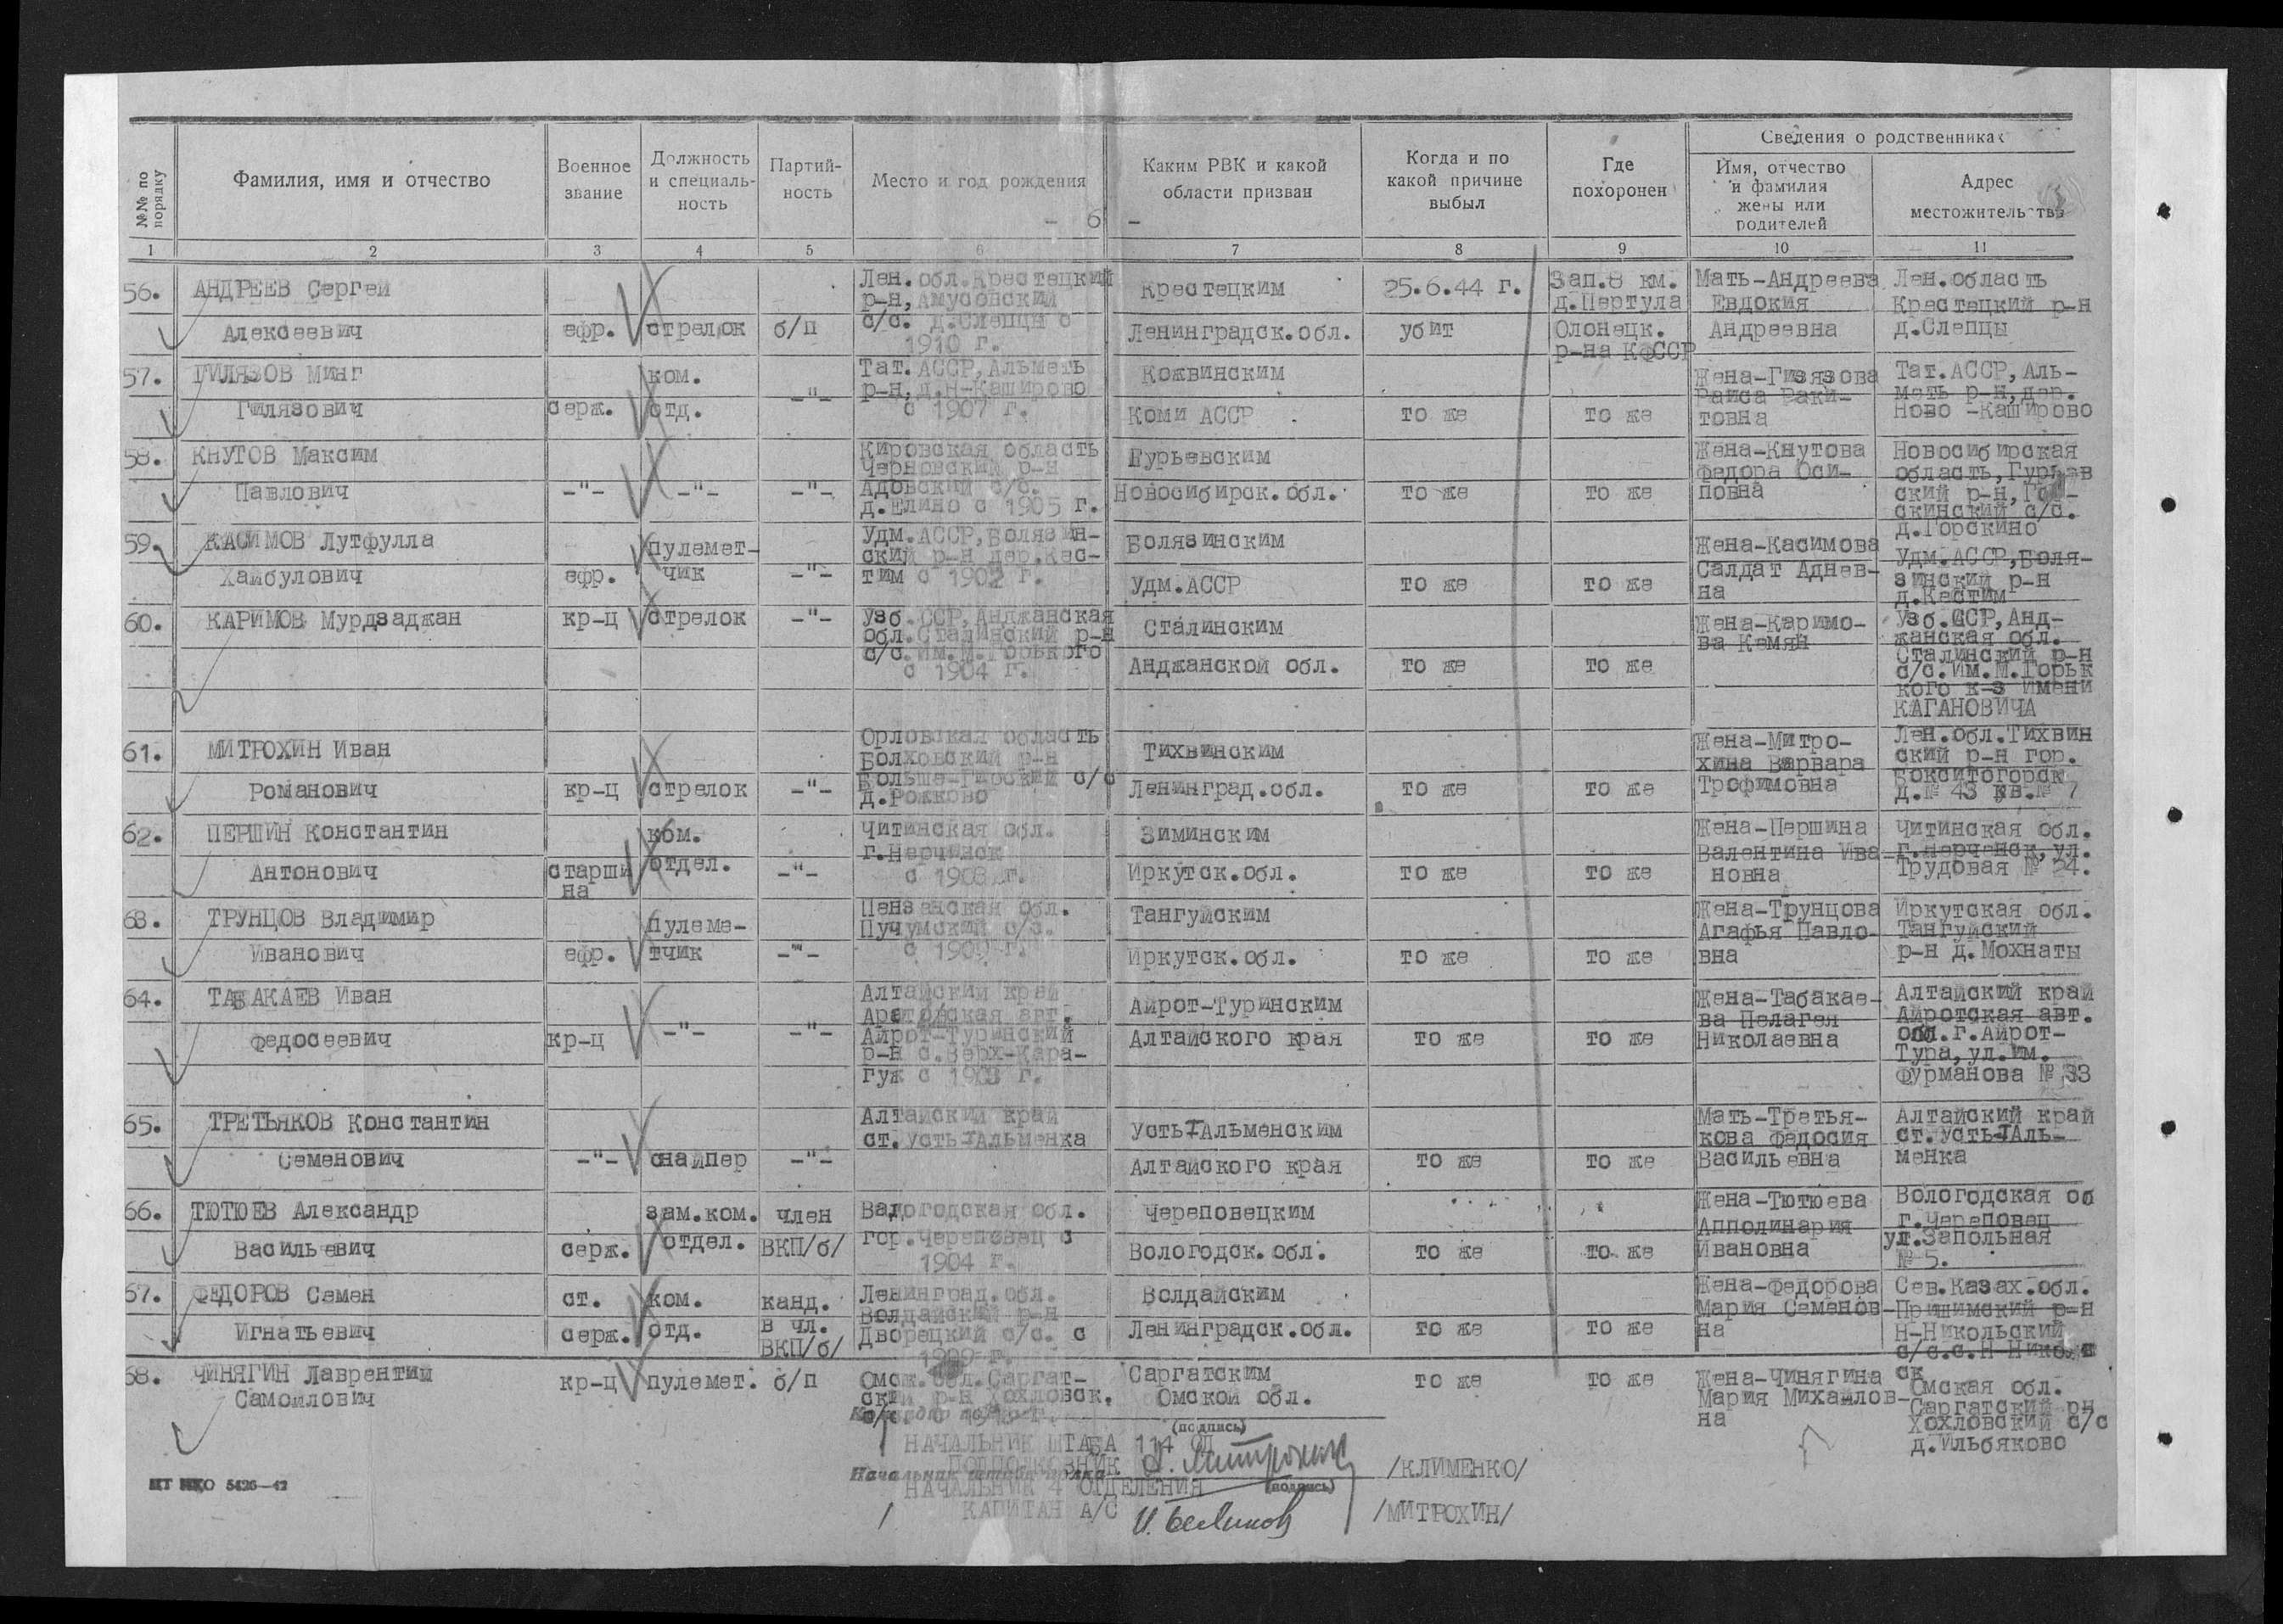 №№ по порядку
Фамилия, имя и отчество
Военное звание
Должность и специаль-ность
Партий-ность
Место и год рождения
Каким РВК и какой области призван
Когда и по какой причине выбыл
Где похоронен
Сведения о родственниках
Имя, отчество и фамилия жены или родителей
Адрес местожительства
- 6 -
1 2 3 4 5 6 7 8 9 10 11
56. АНДРЕЕВ Сергей
Алексеевич
ефр.
стрелок
б/п
Лен.обл.Крестецкий
р-н, Амусовский
с/с. д.Слепцы с
1910 г.
Крестецким
Ленинградск.обл.
25.6.44 г.
убит
Зап.8 км.
д.Пертула
Олонецк.
р-на КФССР
Мать-Андреева
Евдокия
Андреевна
Лен.область
Крестецкий р-н
д.Слепцы
57. ГИЛЯЗОВ Минг
Гилязович
серж.
ком.
отд.
-"-
Тат.АССР,Альметь
р-н,д.Н-Каширово
с 1907 г.
Кожвинским
Коми АССР
то же
то же
Жена-Гизязова
Раиса Раки-
товна
Тат.АССР,Аль-
меть р-н,дер.
Ново-Каширово
58. КНУТОВ Максим
Павлович
-"-
-"-
-"-
Кировская область
Черновский р-н
Адовский с/с.
д.Елино с 1905 г.
Гурьевским
Новосибирск.обл.
то же
то же
Жена-Кнутова
Федора Оси-
повна
Новосибирская
область,Гурьев
ский р-н,
скинский с/с.
д.Горскино
59. КАСИМОВ Лутфулла
Хайбулович
ефр.
пулемет-
чик
-"-
Удм.АССР,Болязин-
ский р-н дер.Кес-
тим с 1902 г.
Болязинским
Удм.АССР
то же
то же
Жена-Касимова
Салдат Аднев-
на
Удм.АССР,Боля-
зинский р-н
д.Кестим
60. КАРИМОВ Мурдзаджан
кр-ц
стрелок
-"-
Узб.ССР,Анджанская
обл.Сталинский р-н
с/с.им.М.Горького
с 1904 г.
Сталинским
Анджанской обл.
то же
то же
Жена-Каримо-
ва Камян
Узб.ССР,Анд-
жанская обл.
Сталинский р-н
с/с.им.М.Горьк
кого к-з имени
КАГАНОВИЧА
61. МИТРОХИН Иван
Романович
кр-ц
стрелок
-"-
Орловская область
Болховский р-н
с/с
д.Рожково
Тихвинским
Ленинград.обл.
то же
то же
Жена-Митро-
хина Варвара
Трофимовна
Лен.обл.Тихвин
ский р-н гор.
Бокситогорск
д.№ 43 кв.№ 7
62. ПЕРШИН Константин
Антонович
старши
на
ком.
отдел.
-"-
Читинская обл.
г.Нерчинск
с 1908 г.
Зиминским
Иркутск.обл.
то же
то же
Жена-Першина
Валентина Ива-
новна
Читинская обл.
г.Нерченск,ул.
Трудовая № 24.
63. ТРУНЦОВ Владимир
Иванович
ефр.
пулеме-
тчик
-"-
Пензенская обл.
Пучумский с/с.
с 1909 г.
Тангуйским
Иркутск.обл.
то же
то же
Жена-Трунцова
Агафья Павло-
вна
Иркутская обл.
Тангуйский
р-н д.Мохнаты
64. ТАБАКАЕВ Иван
Федосеевич
кр-ц
-"-
-"-
Алтайский край
авт.
Айрот-Туринский
р-н с.Верх-Кара-
гуж с 1903 г.
Айрот-Туринским
Алтайского края
то же
то же
Жена-Табакае-
ва Пелагея
Николаевна
Алтайский край
Айротская авт.
обл.г.Айрот-
Тура,ул.им.
Фурманова № 33
65. ТРЕТЬЯКОВ Константин
Семенович
-"-
снайпер
-"-
Алтайский край
ст.Усть-Альменка
Усть-Альменским
Алтайского края
то же
то же
Мать-Третья-
кова Федосия
Васильевна
Алтайский край
ст.Усть-Аль-
менка
66. ТЮТЮЕВ Александр
Васильевич
серж.
зам.ком.
отдел.
член
ВКП/б/
Вологодская обл.
гор.Череповец с
1904 г.
Череповецким
Вологодск.обл.
то же
то же
Жена-Тютюева
Апполинария
Ивановна
Вологодская об
г.Череповец
ул.Запольная
№ 5.
67. ФЕДОРОВ Семен
Игнатьевич
ст.
серж.
ком.
отд.
канд.
в чл.
ВКП/б/
Ленинград.обл.
Волдайский р-н
Дворецкий с/с. с
1909 г.
Волдайским
Ленинградск.обл.
то же
то же
Жена-Федорова
Мария Семенов-
на
Сев.Казах.обл.
Пришимский р-н
Н-Никольский
с/с.с.Н-Никольс
ск
68. ЧИНЯГИН Лаврентий
Самойлович
кр-ц
пулемет.
б/п
Омск.обл.Саргат-
ский р-н Хохловск.
Саргатским
Омской обл.
то же
то же
Жена-Чинягина
Мария Михайлов-
на
Омская обл.
Саргатский рн
Хохловский с/с
д.Ильбяково
(подпись)
НАЧАЛЬНИК ШТАБА 114 СД
ПОДПОЛКОВНИК
/КЛИМЕНКО/
Начальник штаба полка
(подпись)
НАЧАЛЬНИК 4 ОТДЕЛЕНИЯ
КАПИТАН А/С
/МИТРОХИН/
НКО 5426—42